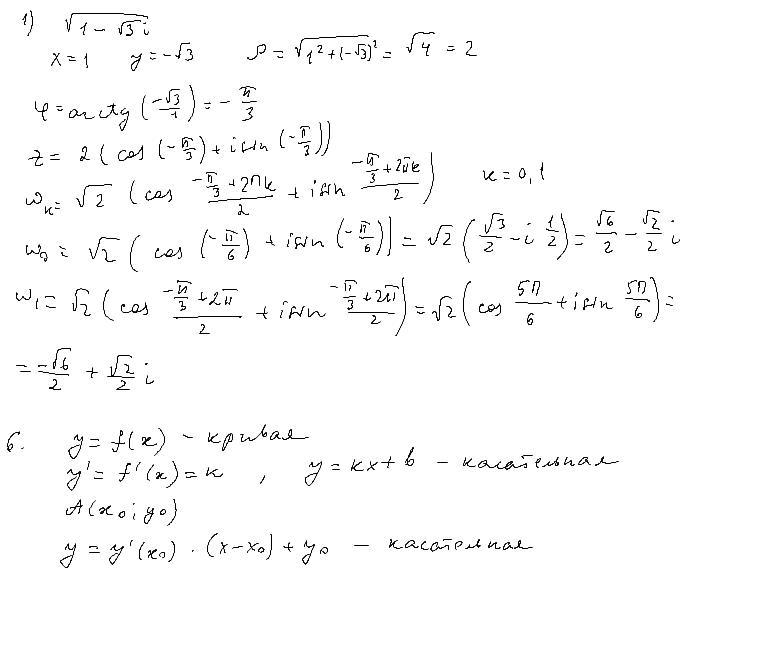 1) √(1 − √3 i)
x = 1 y = −√3 ρ = √(1² + (−√3)²) = √4 = 2
φ = arctg (−√3/1) = − π/3
z = 2 (cos (−π/3) + i sin (−π/3))
wₖ = √2 (cos (−π/3 + 2πk)/2 + i sin (−π/3 + 2πk)/2) k = 0, 1
w₀ = √2 (cos (−π/6) + i sin (−π/6)) = √2 (√3/2 − i 1/2) = √6/2 − √2/2 i
w₁ = √2 (cos (−π/3 + 2π)/2 + i sin (−π/3 + 2π)/2) = √2 (cos 5π/6 + i sin 5π/6) =
= −√6/2 + √2/2 i
6. y = f(x) − кривая
y' = f'(x) = k , y = kx + b − касательная
A(x₀; y₀)
y = y'(x₀) · (x − x₀) + y₀ − касательная